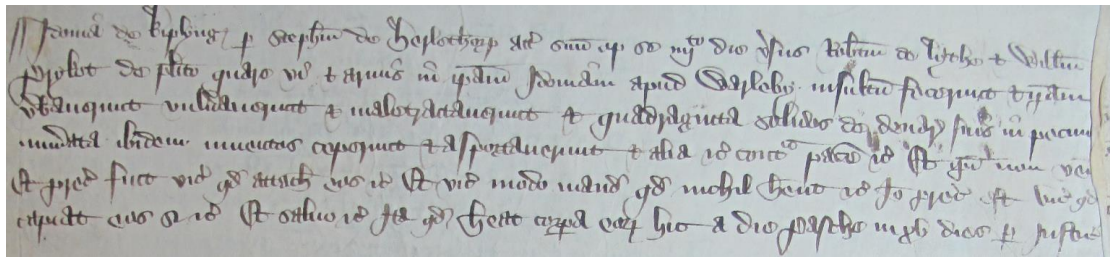 Joh'na de Kiplyng p Stephm de Heslethorp att suu op se iiijto die v'sus Robtm de lythe & Willm
Probot de plito quare vi & armis in ip'am Joh'nam apud Warloby insultu fecerunt & ip'am
vberaverunt vuln'averunt & maletractaverunt Et quadraginta solidos de denar' suis in pecun
num'ata ibidem inventos ceperunt & asportaverunt & alia &c cont' pacem &c Et ip'i non ven
Et prec' fuit vic' qd attach' eos &c Et vic' modo mand' qd nichil hent &c Jo prec' est vic' qd
capiat eos si &c Et salvo &c Ita qd heat corpa eor' hic a die Pasche in xv dies p Justic